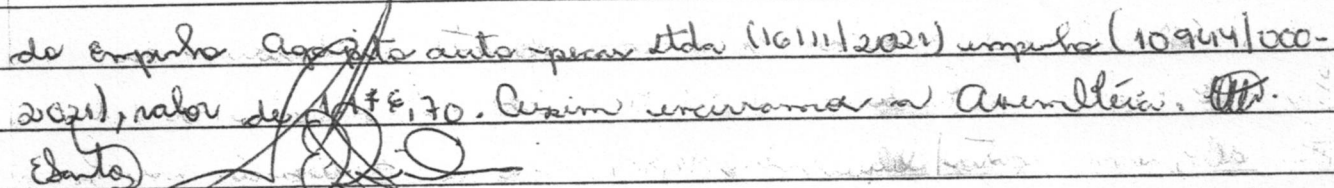 do empenho Agojota auto peças Ltda (16/11/2021) empenho (10944/000-
2021), valor de ,70. Assim encerramos a Assembléia.
ESantos